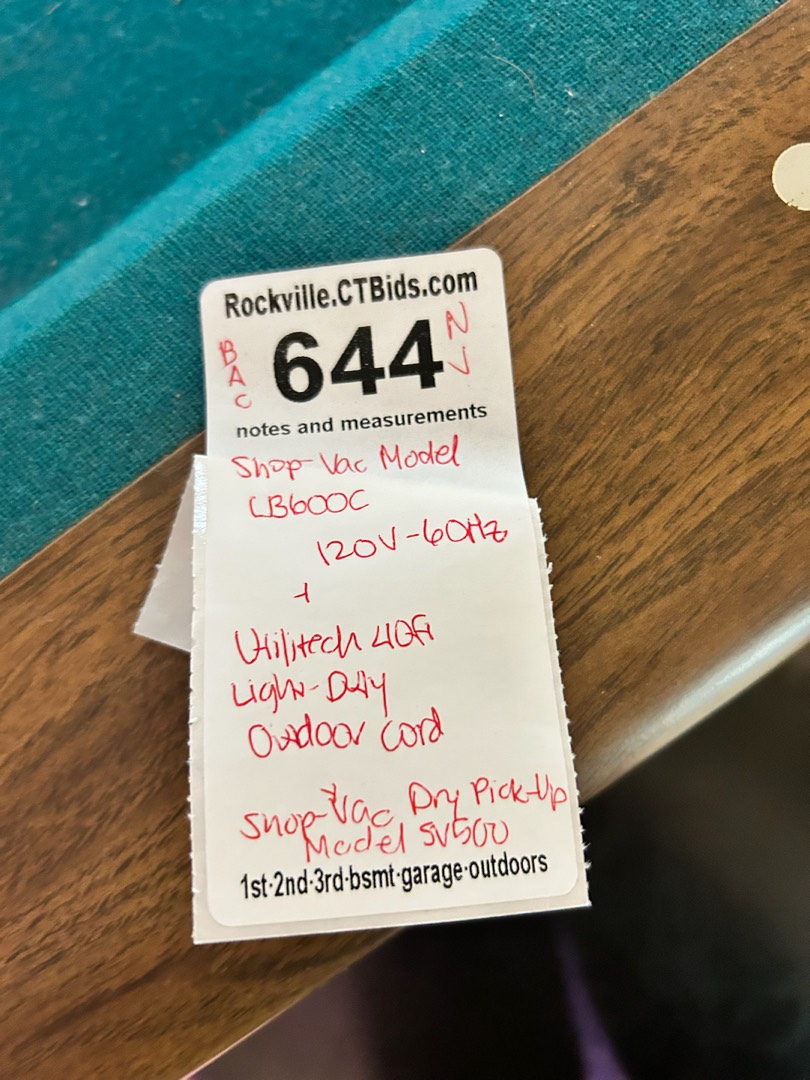 Rockville.CTBids.com
BAC 644 NV
notes and measurements
Shop-Vac Model
LB600C
120V-60Hz
+
Utilitech 40Ft
Light-Duty
Outdoor Cord
+
Shop-Vac Dry Pick-Up
Model SV500
1st·2nd·3rd·bsmt·garage·outdoors